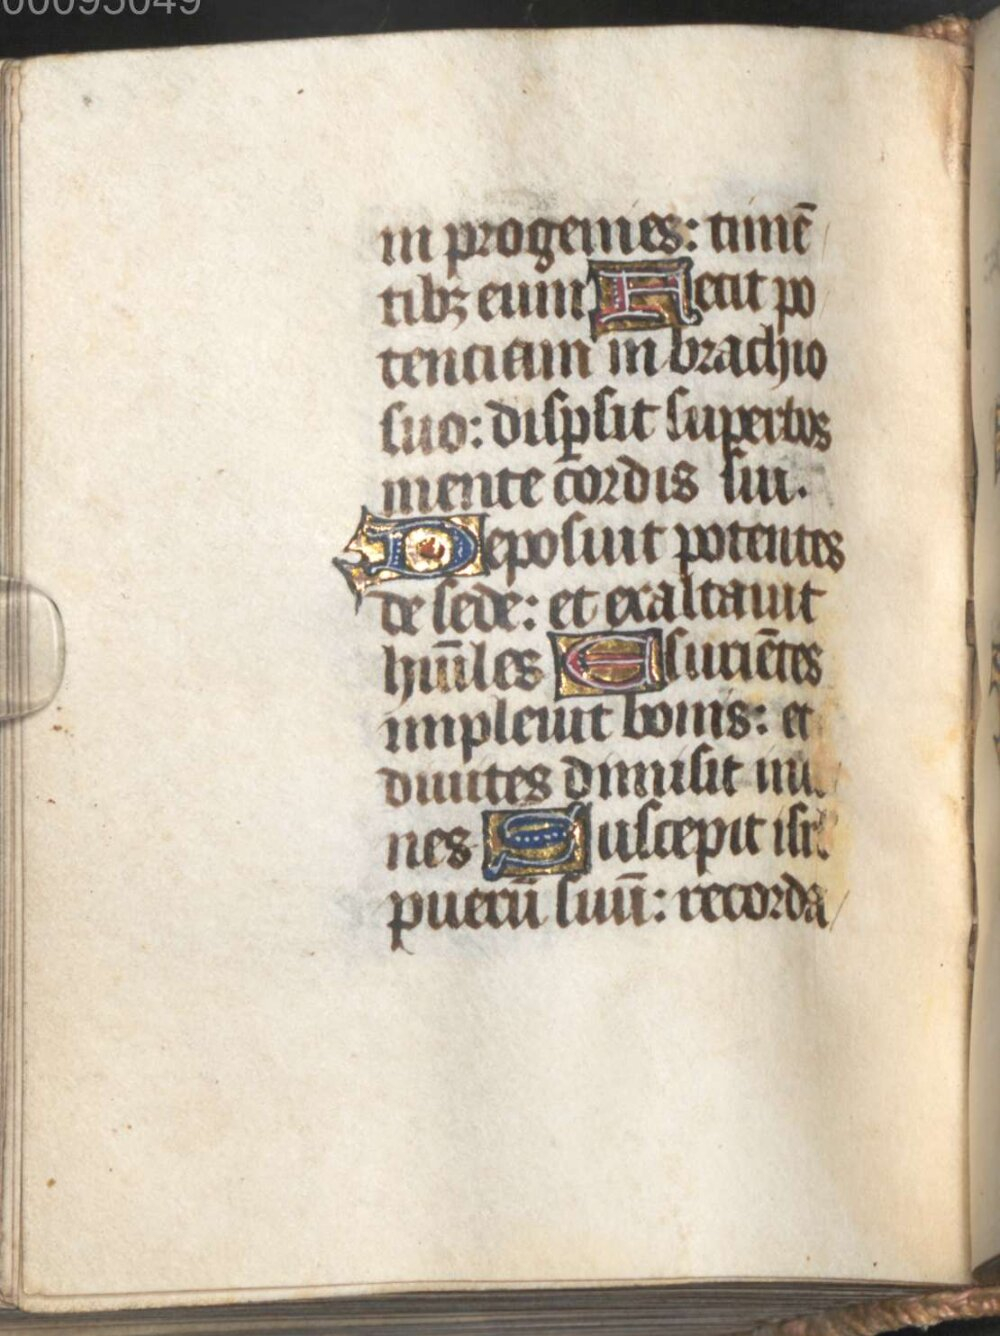 00095049
in progenies: timē
tibꝫ eum Fecit po
tenciam in brachio
suo: dispsit superbos
mente cordis sui.
Deposuit potentes
de sede: et exaltauit
hūiles Esuriētes
impleuit bonis: et
diuites dimisit ina
nes Suscepit isrl
puerū suū: recorda